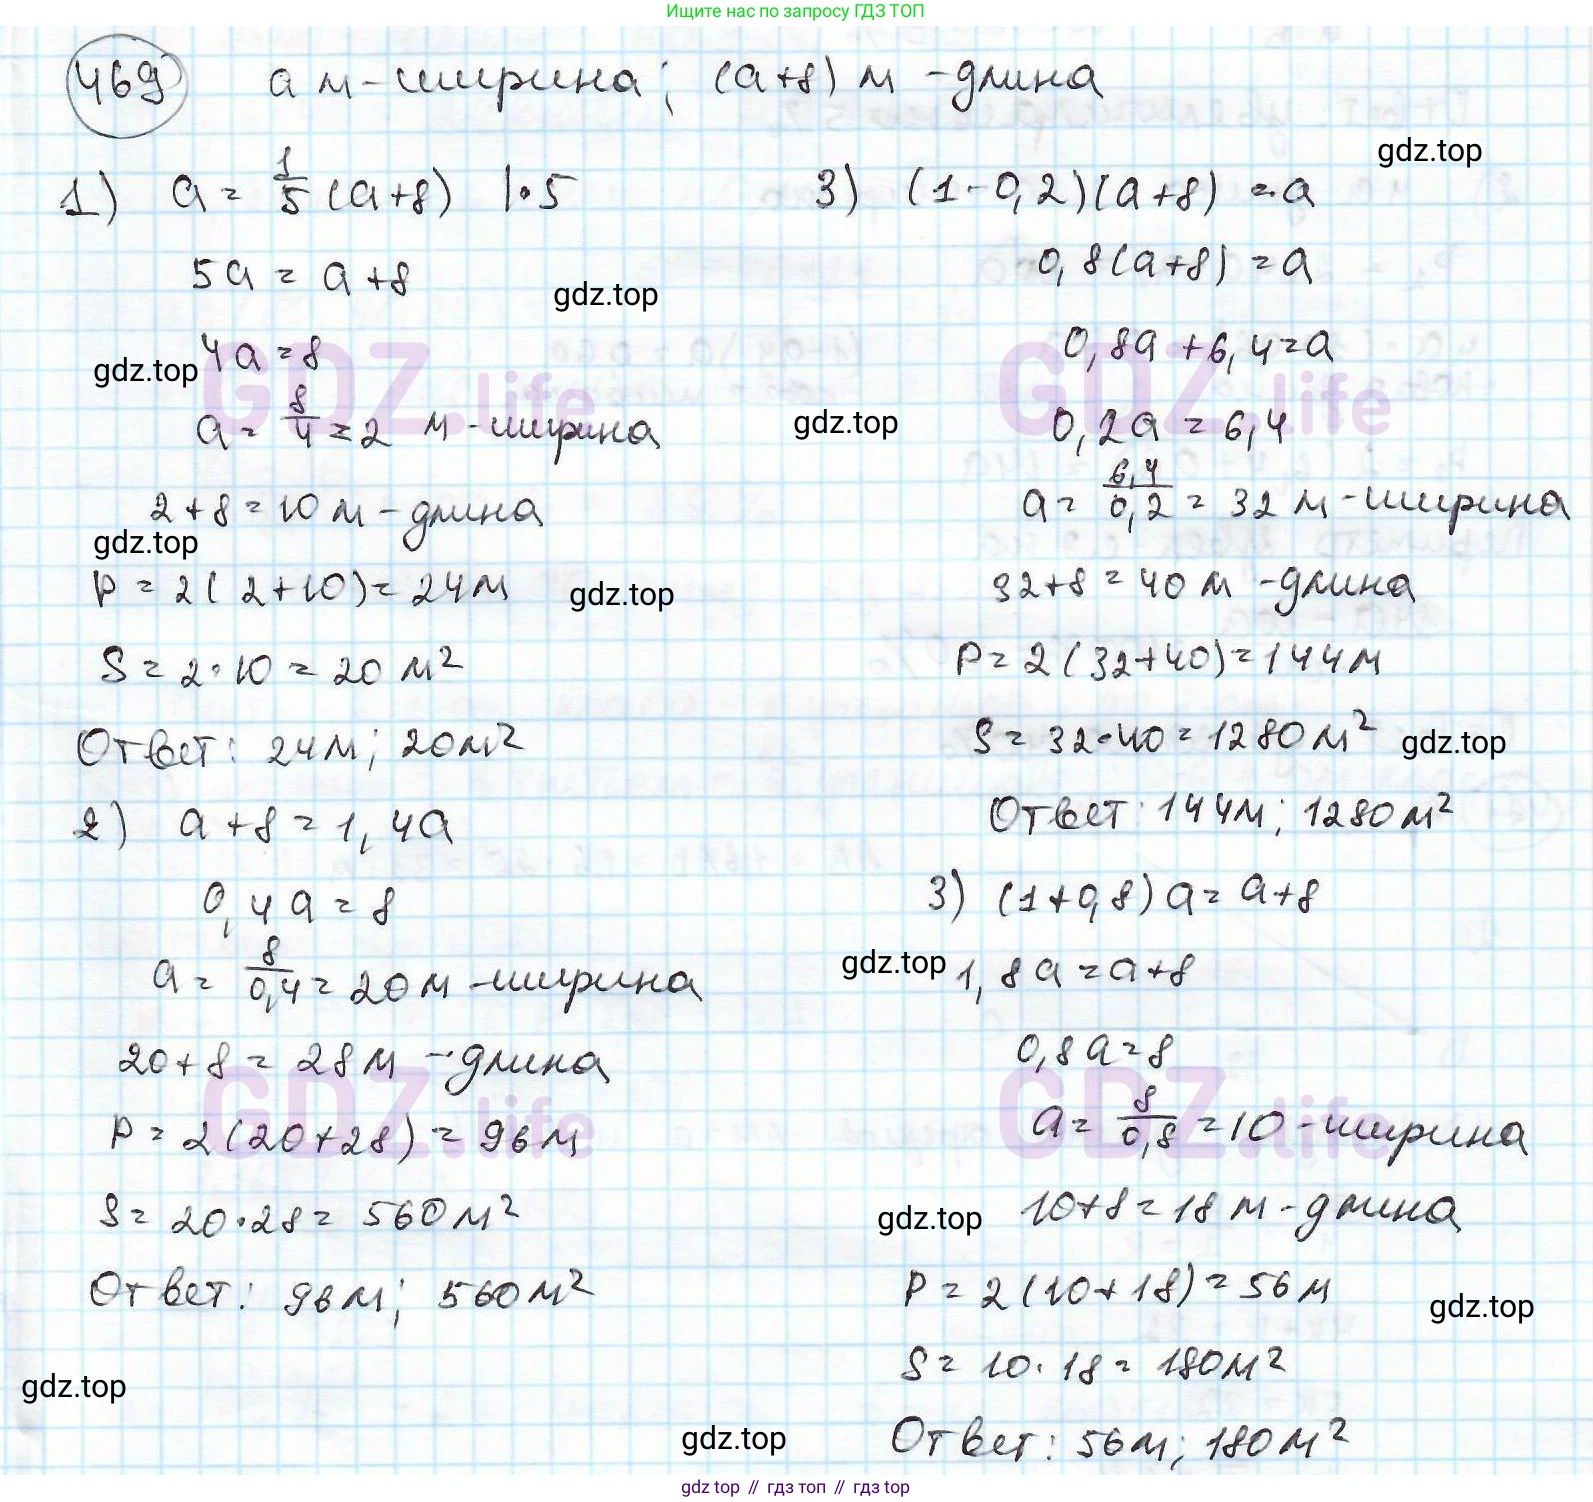 Ищите нас по запросу ГДЗ ТОП
469 а м - ширина; (а+8) м - длина
1) а = 1/5 (а+8) |·5
5а = а+8
4а = 8
а = 8/4 = 2 м - ширина
2+8 = 10 м - длина
P = 2(2+10) = 24 м
S = 2·10 = 20 м²
Ответ: 24м; 20м²
2) а+8 = 1,4а
0,4а = 8
а = 8/0,4 = 20 м - ширина
20+8 = 28 м - длина
P = 2(20+28) = 96 м
S = 20·28 = 560 м²
Ответ: 96м; 560м²
3) (1-0,2)(а+8) = а
0,8(а+8) = а
0,8а + 6,4 = а
0,2а = 6,4
а = 6,4/0,2 = 32 м - ширина
32+8 = 40 м - длина
P = 2(32+40) = 144м
S = 32·40 = 1280 м²
Ответ: 144м; 1280м²
3) (1+0,8)а = а+8
1,8а = а+8
0,8а = 8
а = 8/0,8 = 10 - ширина
10+8 = 18 м - длина
P = 2(10+18) = 56 м
S = 10·18 = 180м²
Ответ: 56м; 180м²
gdz.top
gdz.top
gdz.top
gdz.top
gdz.top
gdz.top
gdz.top
gdz.top
gdz.top
gdz.top
gdz.top
gdz.top
GDZ.life
GDZ.life
GDZ.life
GDZ.life
gdz top // гдз топ // гдз top